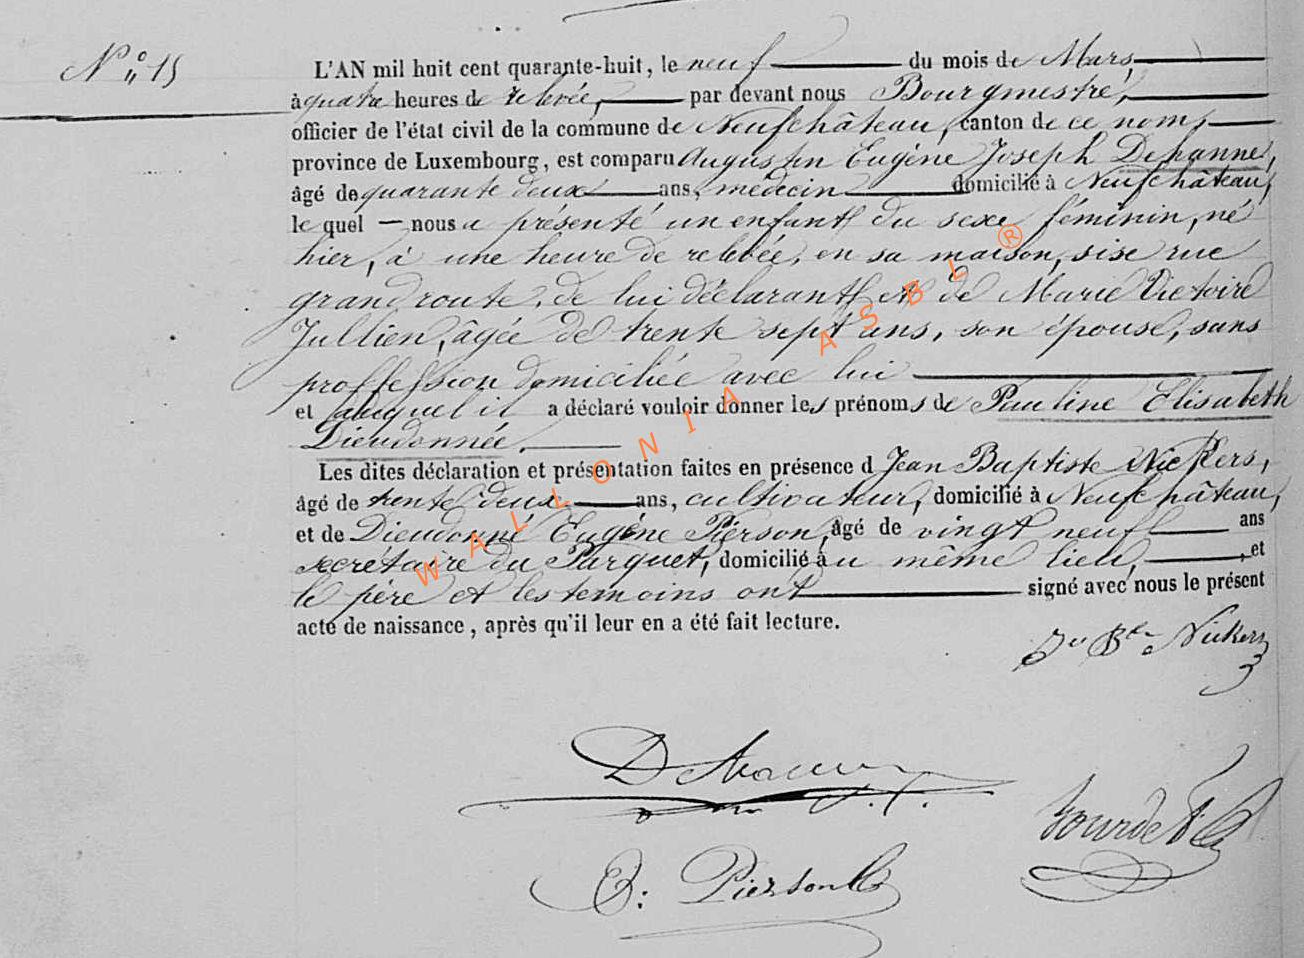 N° 15
L'AN mil huit cent quarante-huit, le neuf du mois de Mars
à quatre heures de relevée, par devant nous Bourgmestre,
officier de l'état civil de la commune de Neufchâteau, canton de ce nom,
province de Luxembourg, est comparu Augustin Eugène Joseph Dehanne,
âgé de quarante deux ans, médecin domicilié à Neufchâteau,
le quel nous a présenté un enfant du sexe féminin, né
hier, à une heure de relevée, en sa maison, sise rue
grand route, de lui déclarant et de Marie Victoire
Jullien, âgée de trente sept ans, son épouse, sans
proffession domiciliée avec lui
et auquel il a déclaré vouloir donner les prénoms de Pauline Elisabeth
Dieudonnée.
Les dites déclaration et présentation faites en présence d Jean Baptiste Nickers,
âgé de trente deux ans, cultivateur, domicilié à Neufchâteau,
et de Dieudonné Eugène Pierson, âgé de vingt neuf ans
secrétaire du Parquet, domicilié au même lieu, et
le père et les temoins ont signé avec nous le présent
acte de naissance, après qu'il leur en a été fait lecture.
Jn Bte Nickers
E: Pierson
WALLONIA ASBL ®